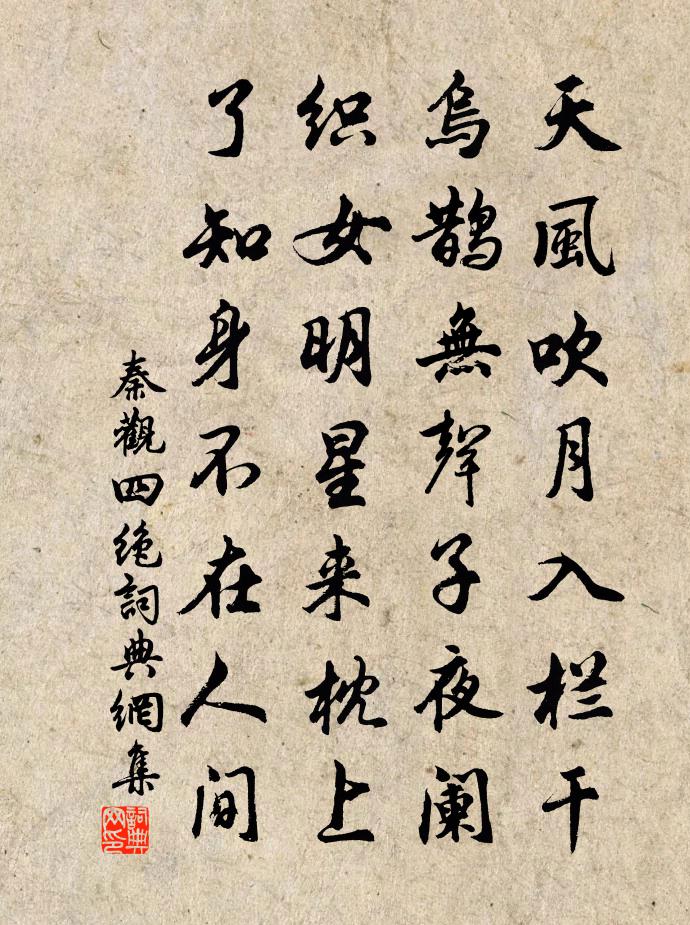 天風吹月入栏干
烏鵲無聲子夜阑
织女明星来枕上
了知身不在人间
秦觀四绝詞典網集
詞典网印